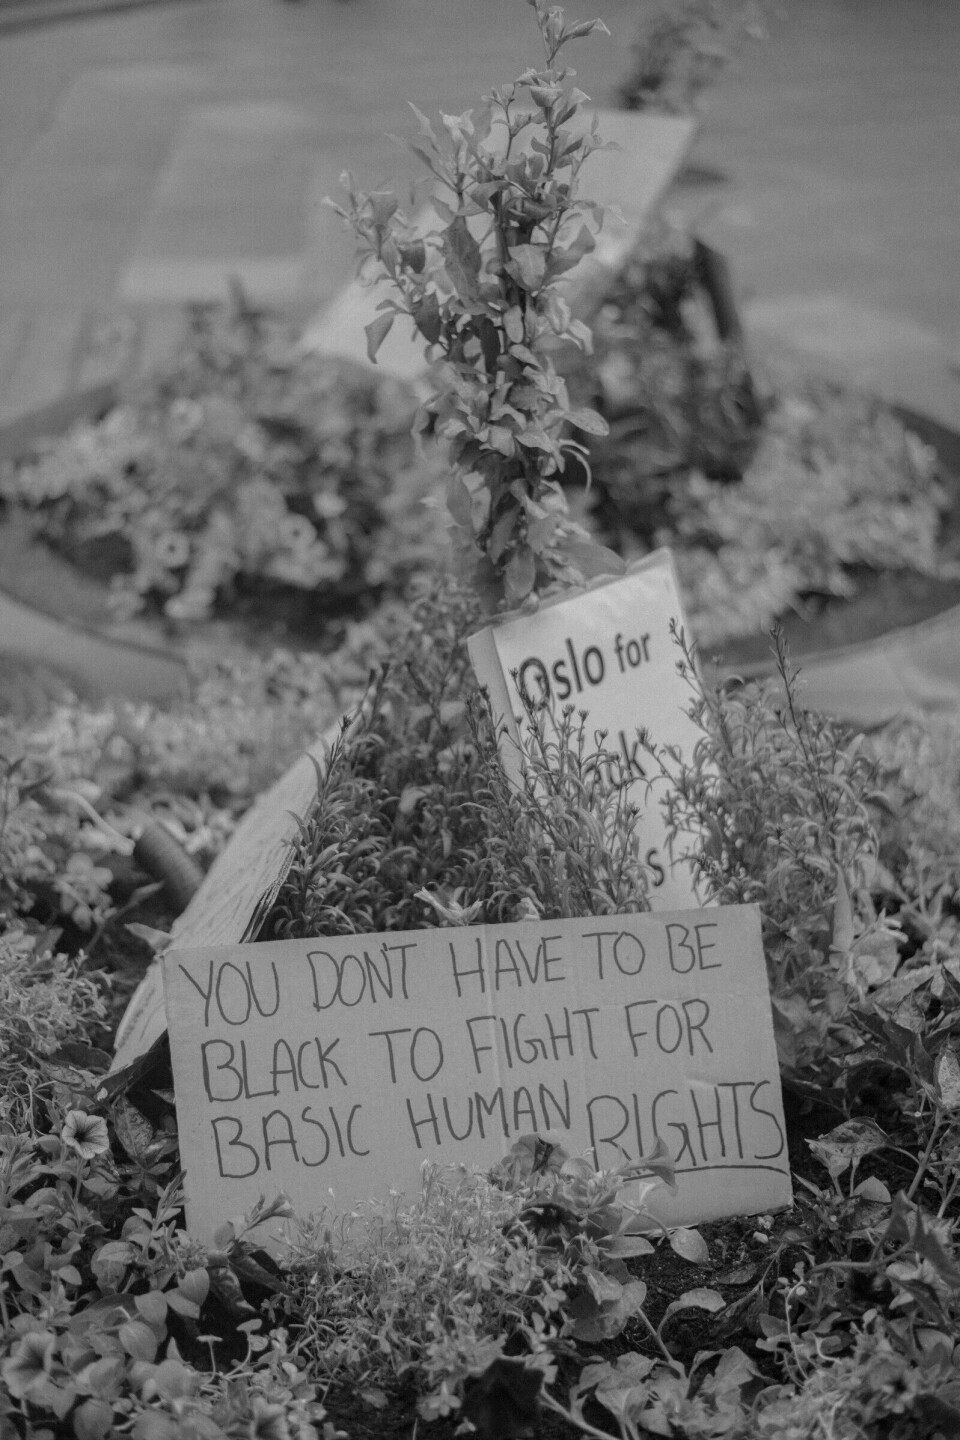 Oslo for
YOU DON'T HAVE TO BE
BLACK TO FIGHT FOR
BASIC HUMAN RIGHTS